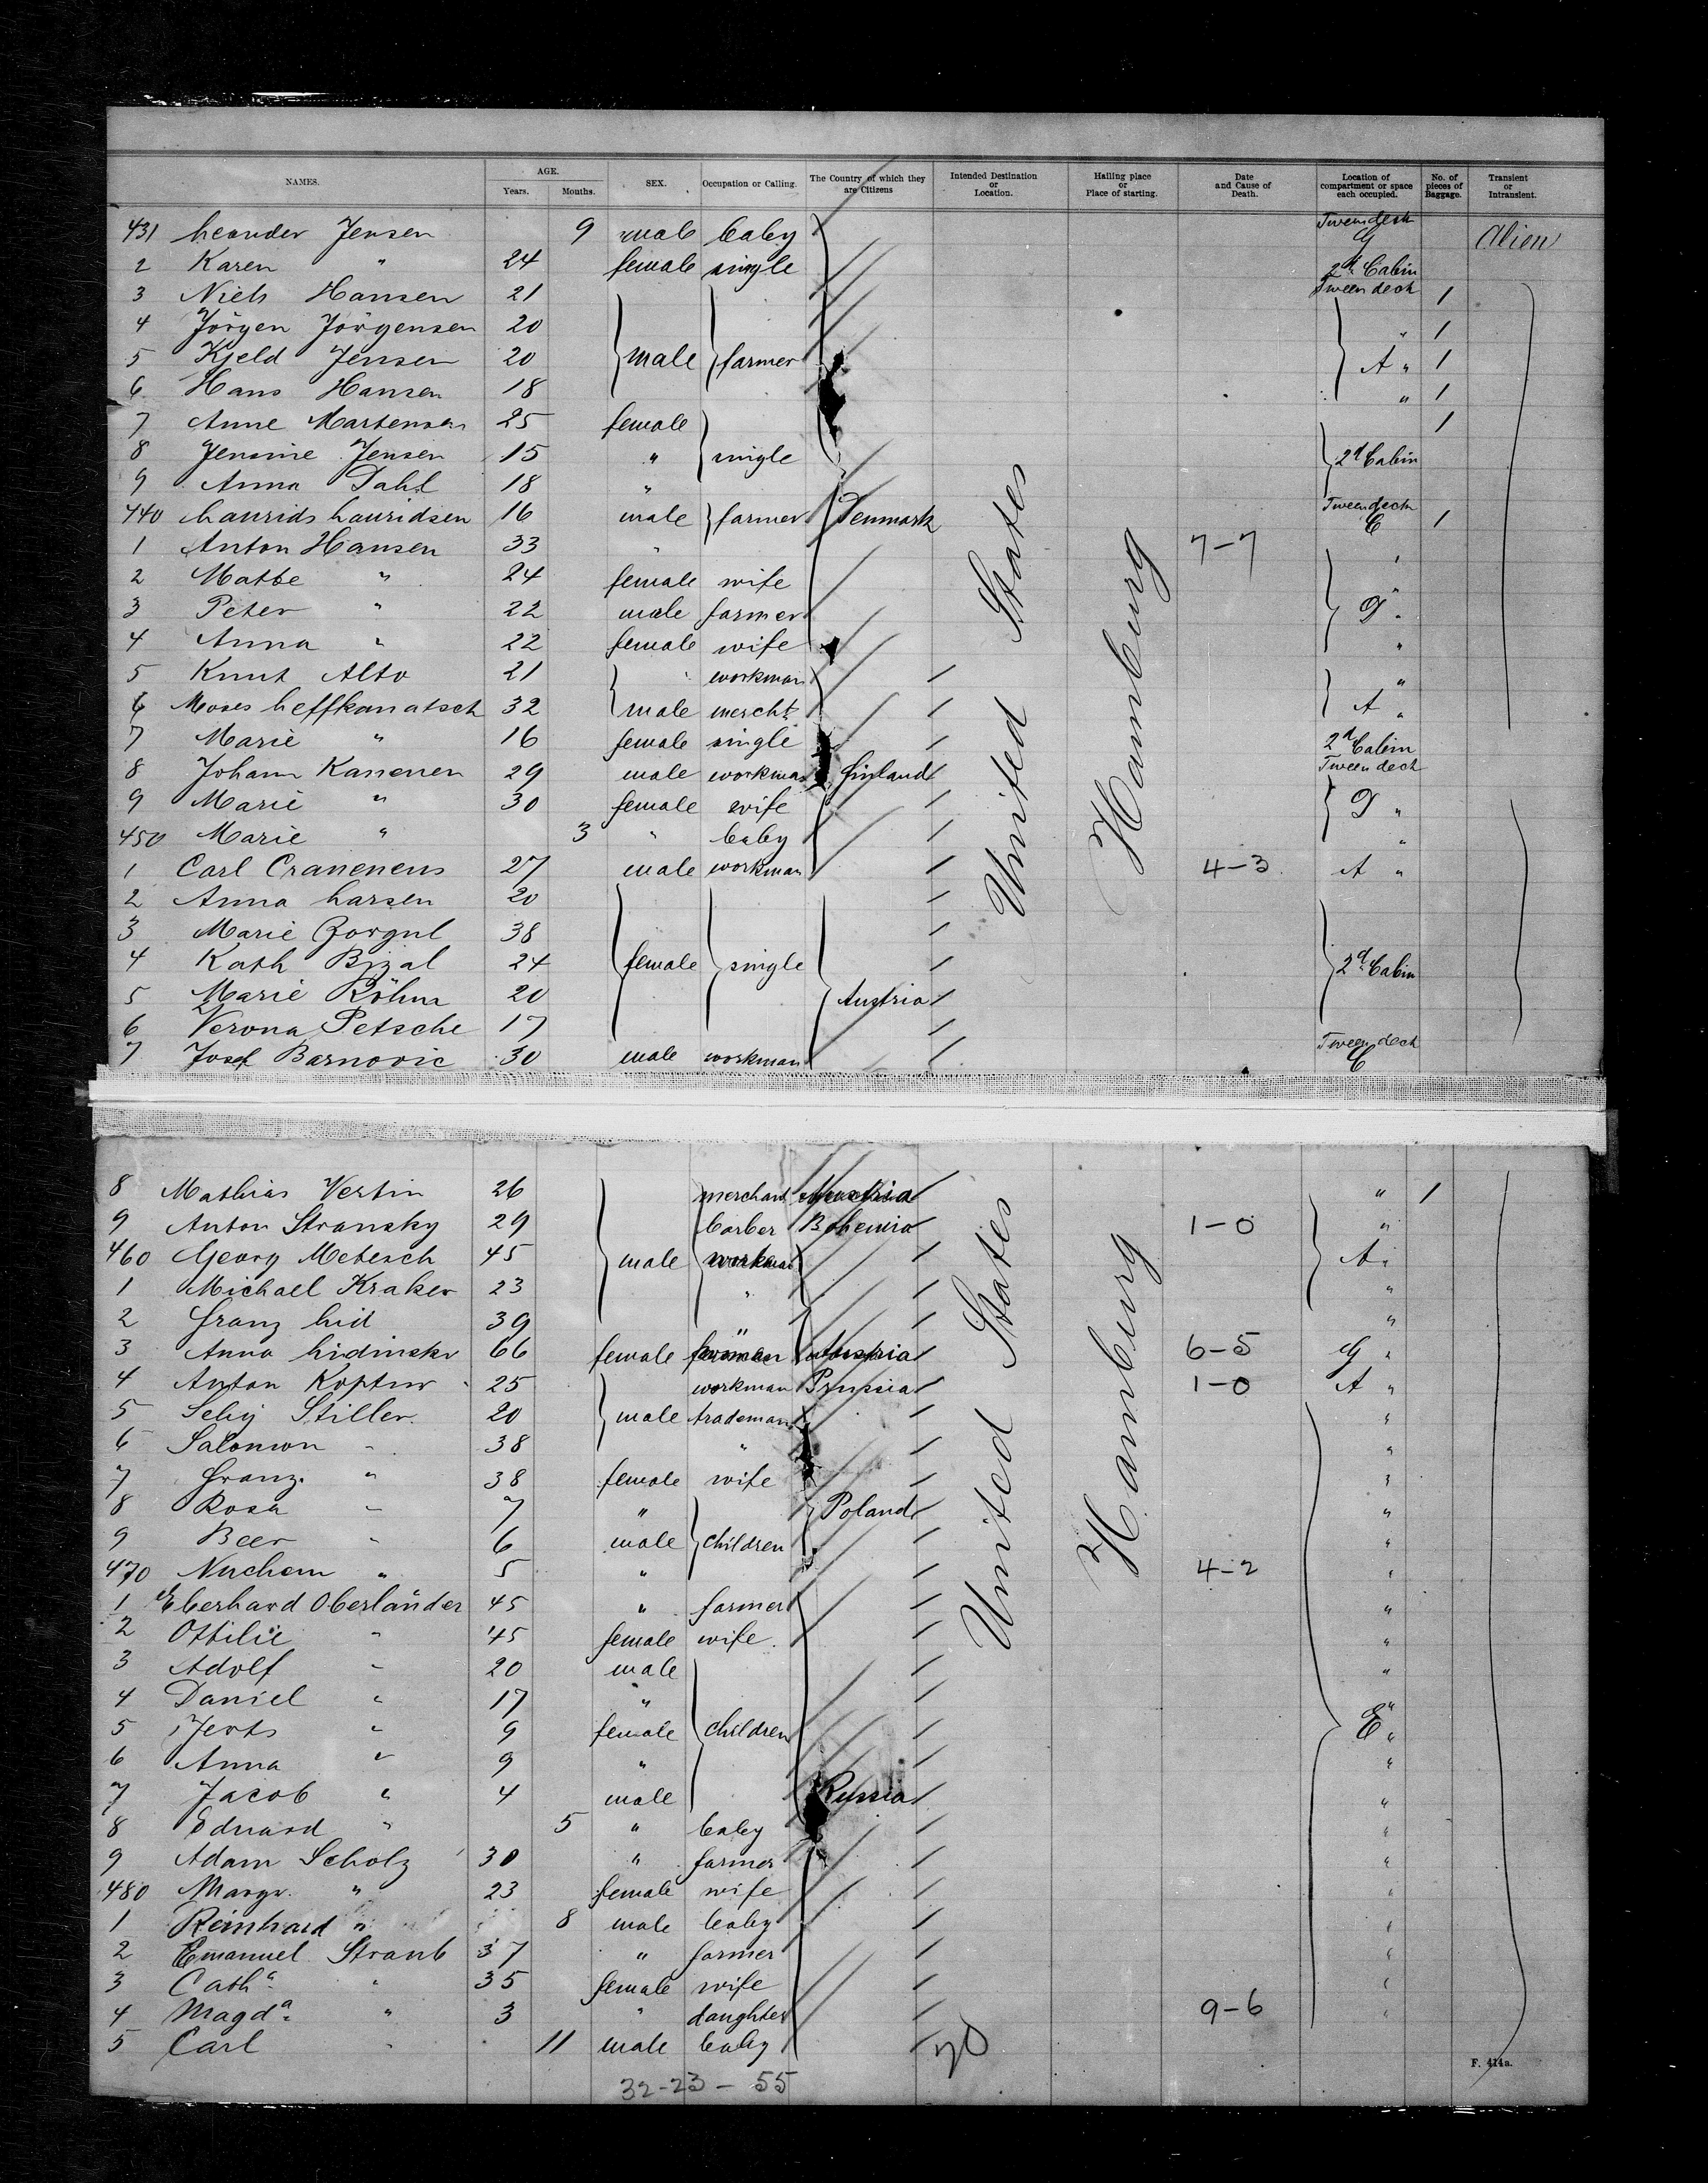 NAMES. AGE. Years. Months. SEX. Occupation or Calling. The Country of which they are Citizens Intended Destination or Location. Hailing place or Place of starting. Date and Cause of Death. Location of compartment or space each occupied. No. of pieces of Baggage. Transient or Intransient.
431 Leander Jensen 9 male baby Tweendeck G Alien
2 Karen " 24 female single 2d Cabin
3 Niels Hansen 21 Tweendeck 1
4 Jörgen Jörgensen 20 " 1
5 Kjeld Jensen 20 male farmer A " 1
6 Hans Hansen 18 " 1
7 Anne Martensen 25 female 1
8 Jensine Jensen 15 " single 2d Cabin
9 Anna Dahl 18 "
440 Laurids Lauridsen 16 male farmer Denmark Tweendeck C 1
1 Anton Hansen 33 " 7-7 "
2 " 24 female wife "
3 Peter " 22 male farmer D "
4 Anna " 22 female wife "
5 Knut Alto 21 workman "
6 Moses Leffkanatsch 32 male mercht. A "
7 Marie " 16 female single 2d Cabin
8 Johann Kanenen 29 male workman Finland Tweendeck
9 Marie " 30 female wife D "
450 Marie " 3 " baby "
1 Carl Cranenens 27 male workman 4-3 A "
2 Anna Larsen 20
3 Marie 38
4 Kath 24 female single 2d Cabin
5 Marie Röhm 20 Austria
6 Verona Petsche 17
7 Josef Barnovic 30 male workman Tweendeck C
United States
Hamburg
8 Mathias Vertin 26 merchant Austria " 1
9 Anton Stransky 29 barber Bohemia 1-0 "
460 Georg Metesch 45 male workman A "
1 Michael Kraker 23 " "
2 Franz Lid 39 " "
3 Anna 66 female Austria 6-5 G "
4 Anton 25 workman Prussia 1-0 A "
5 Selig Stiller 20 male trademan "
6 Salomon " 38 " "
7 Franz. " 38 female wife "
8 Rosa " 7 " Poland "
9 Beer " 6 male children "
470 Nuchem " 5 " 4-2 "
1 Eberhard Oberländer 45 " farmer "
2 Ottilie " 45 female wife "
3 Adolf " 20 male "
4 Daniel " 17 " "
5 " 9 female children E "
6 Anna " 9 " "
7 Jacob " 4 male Russia "
8 Eduard " 5 " baby "
9 Adam Scholz 30 " farmer "
480 Margr. " 23 female wife "
1 Reinhard " 8 male baby "
2 Emanuel Straub 37 " farmer "
3 Catha. " 35 female wife "
4 Magda. " 3 " daughter 9-6 "
5 Carl " 11 male baby
United States
Hamburg
F. 414a.
32-23-55